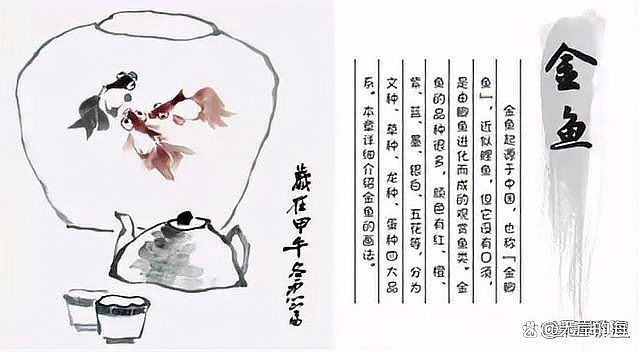 金鱼
金鱼起源于中国，也称「金鲫
鱼」，近似鲤鱼，但它没有口须，
是由鲫鱼进化而成的观赏鱼类。金
鱼的品种很多，颜色有红、橙、
紫、蓝、墨、银白、五花等，分为
文种、草种、龙种、蛋种四大品
系。本章详细介绍金鱼的画法。
歲在甲午